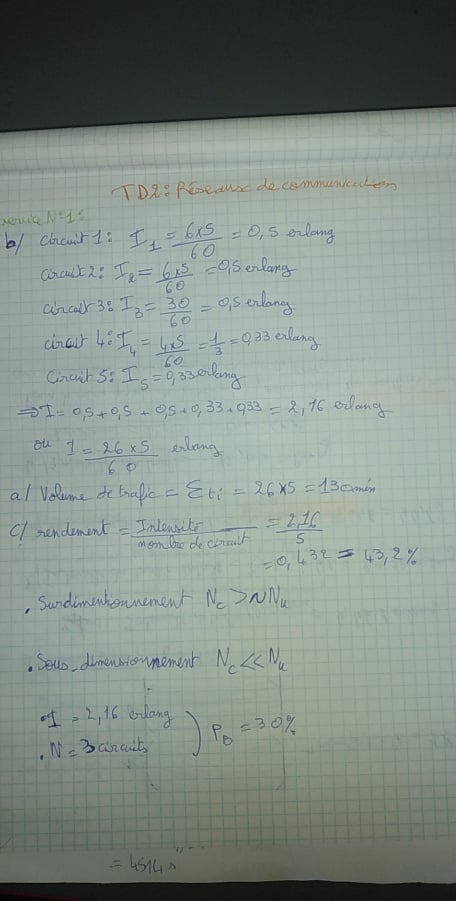 TD2: Réseaux de communication
Exercice N°1:
b/ Circuit 1: I1 = 6x5/60 = 0,5 erlang
circuit 2: I2 = 6x5/60 = 0,5 erlang
circuit 3: I3 = 30/60 = 0,5 erlang
circuit 4: I4 = 4x5/60 = 1/3 = 0,33 erlang
Circuit 5: I5 = 0,33 erlang
⇒ I = 0,5 + 0,5 + 0,5 + 0,33 + 0,33 = 2,16 erlang
ou I = 26 x 5/60 erlang
a/ Volume de trafic = Σti = 26 x 5 = 130 min
C/ rendement = Intensité/nombre de circuit = 2,16/5
= 0,432 = 43,2%
. Surdimentionnement Nc >> Nu
. Sous-dimensionnement Nc << Nu
. I = 2,16 erlang
. N = 3 circuits ) PB = 30%
= 4514 s